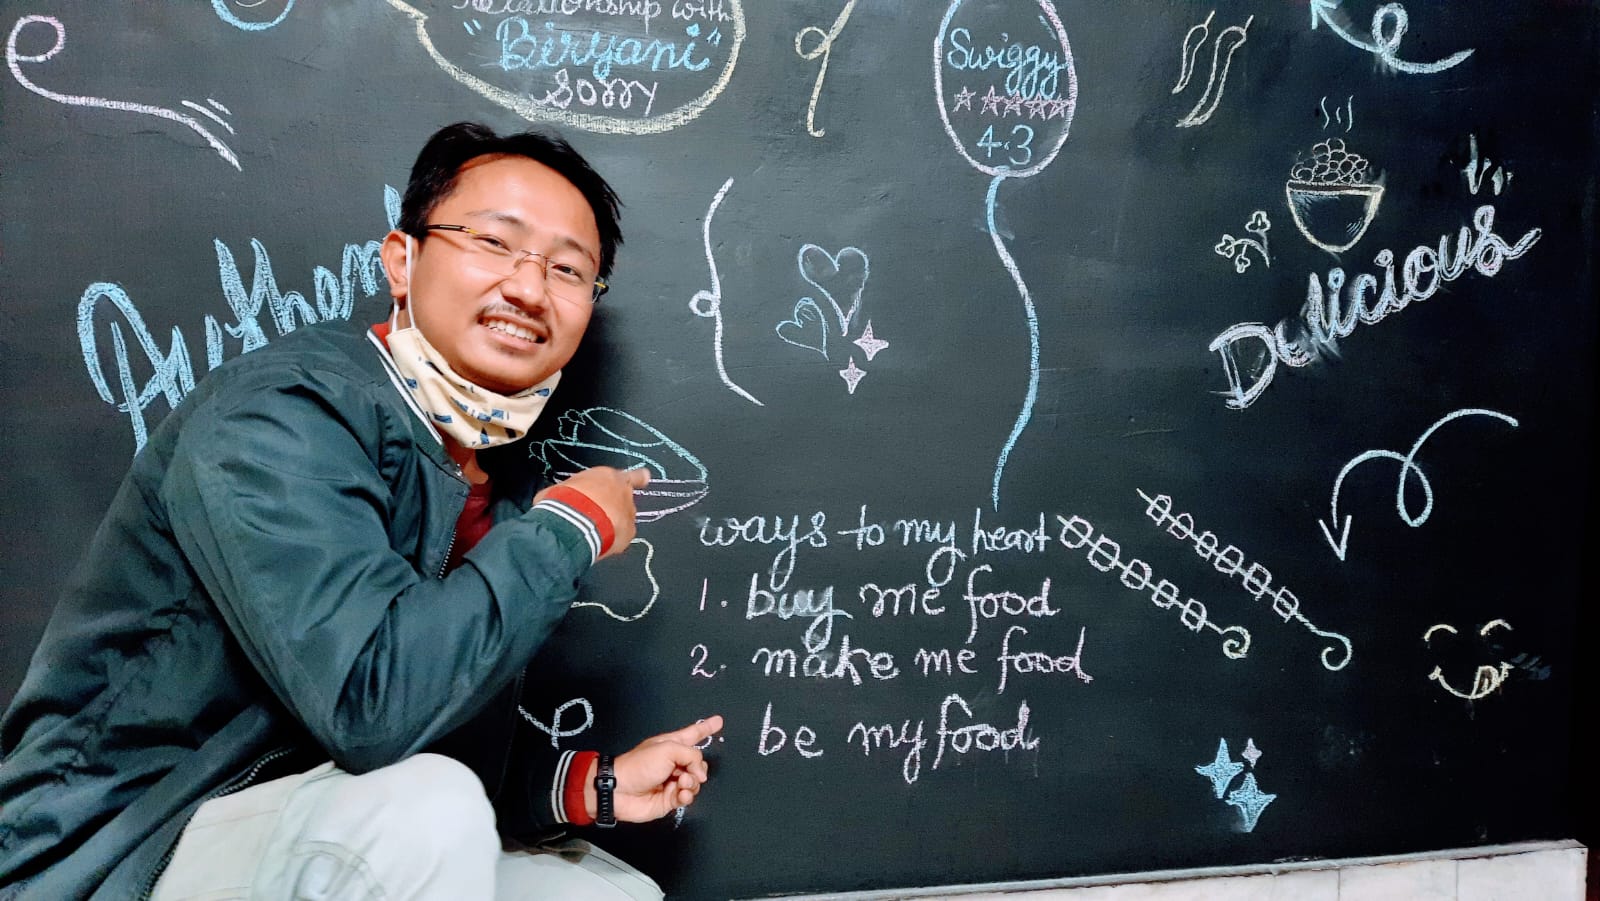 Relationship with
"Biryani"
Sorry
Swiggy
4.3
Delicious
ways to my heart
1. buy me food
2. make me food
3. be my food